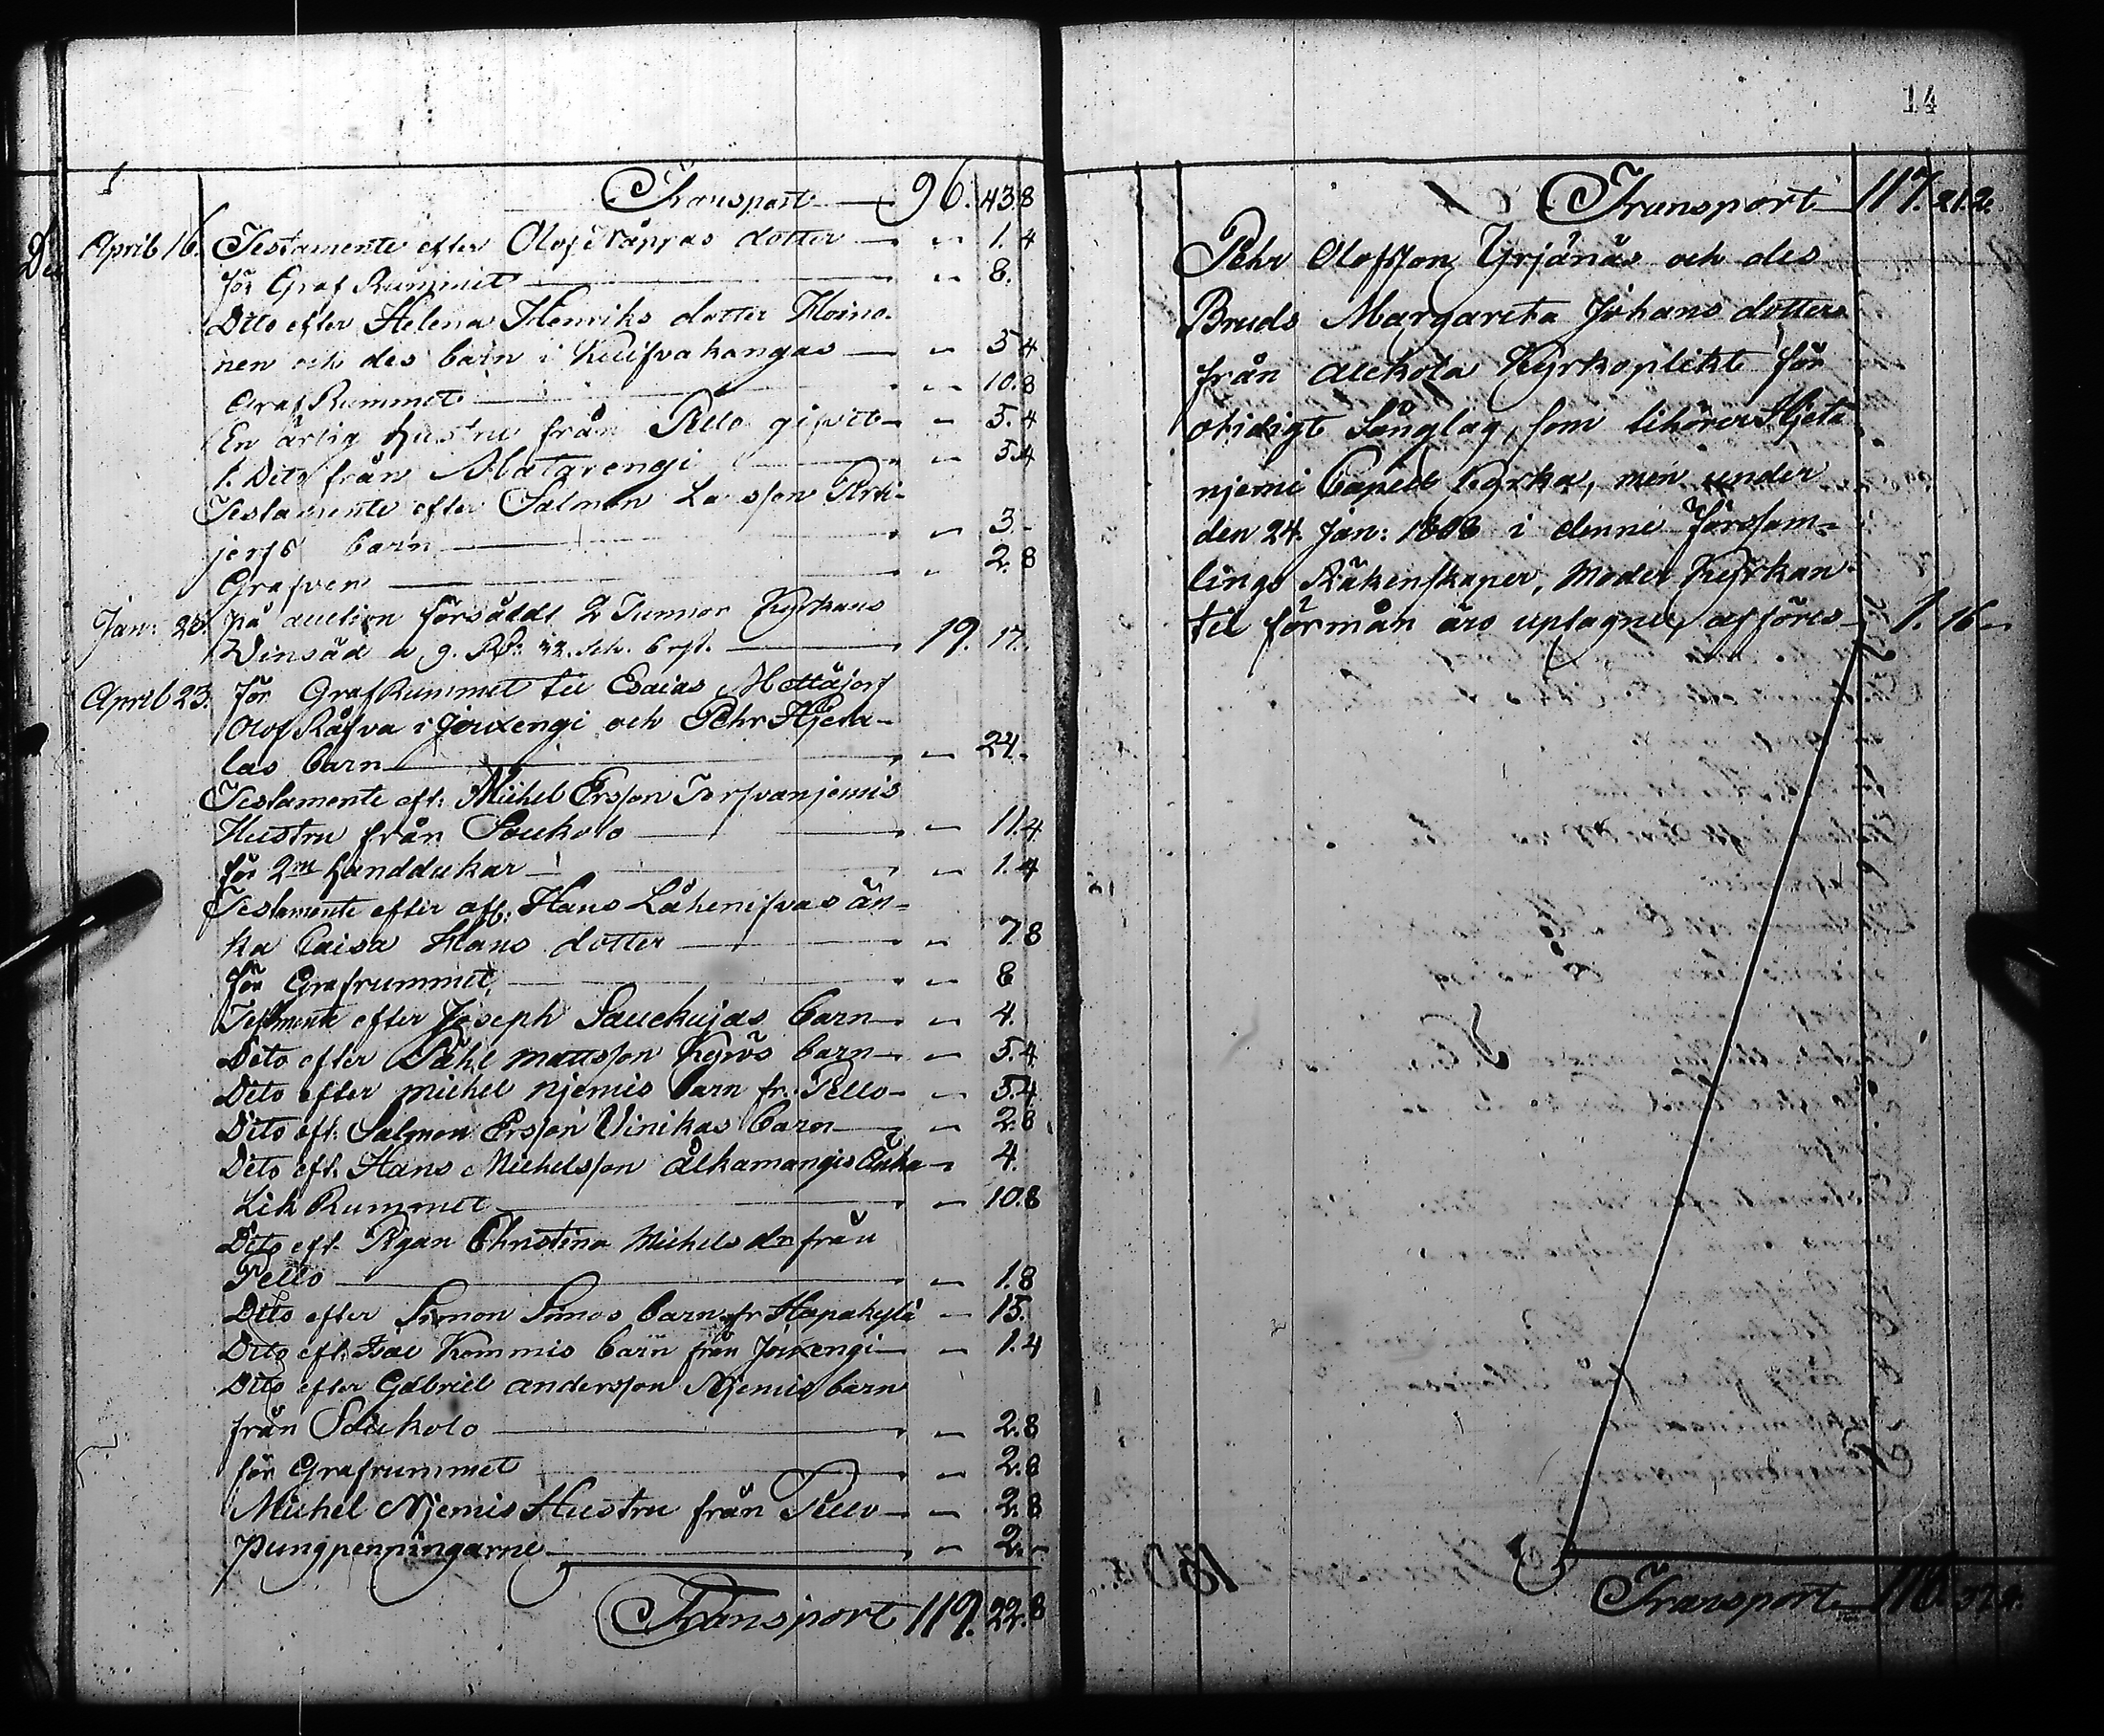 Transport — 96. 43. 8
April 16. Testamente efter Olof dotter — " 1. 4
för Graf Rummet — " 8.
Dito efter Helena Henriks dotter Hoino-
nen och des barn i Kuifvakangas — " 5 4
Graf Rummet — " 10. 8
En ärlig hustru från Pello gifvit — " 5. 4
1. Dito från Matarengi — " 5. 4
Testamente efter Salmon Larsson Pirti-
jerfs barn — " 3.
Grafven — " 2. 8
Jan: 20. på auction försåldt 2 Tunnor Kyrkans
Vinsäd a 9. Rd: 32. sch. 6 rst. — 19. 17.
April 23. för Graf Rummet til Esaias Mettäjerf
Olof Råfva i Jouxengi och Pehr Hjeta-
las barn — " 24.
Testamente eft: Michel Ersson Torfvanjemis
Hustru från Soukolo — " 11. 4
för 2ne handdukar — " 1. 4
Testamente efter afl: Hans Låhenifvas än-
ka Caisa Hans dotter — " 7. 8
för Grafrummet — " 8
Testmente efter Joseph Sauckujas barn — " 4.
Dito efter Påhl mattsson Kyrös barn — " 5. 4
Dito efter michel Njemis barn fr. Pello — " 5. 4
Dito eft. Salmon Ersson Vinikas barn — " 2. 8
Dito eft. Hans Michelsson Alkamangis Enka — " 4.
Lik Rummet — " 10. 8
Dito eft. Pigan Christina Michels dr från
Pello — " 1. 8
Dito efter Simon Simos barn fr Hapakylä — 15.
Dito eft. Isac Kommis barn från Jouxengi — " 1. 4
Dito efter Gabriel andersson Njemis barn
från Soukolo — " 2. 8
för Grafrummet — " 2. 8
Michel Njemis Hustru från Pello — " 2. 8
Pungpenningarne — " 2. "
Transport 119. 22. 8
14
Transport — 117. 21. 2.
Pehr Olofsson Yrjänäs och des
Bruds Margareta Johans dotters
från Auckola Kyrkoplikt för
otidigt Sänglag, som tihörer Hjeta
njemi Capell kyrka, men under
den 24. Jan: 1808 i denne Församl=
lings Räkenskaper, Moder Kyrkan
til förmån äro uptagne, afföres — 1. 16 —
Transport — 116.